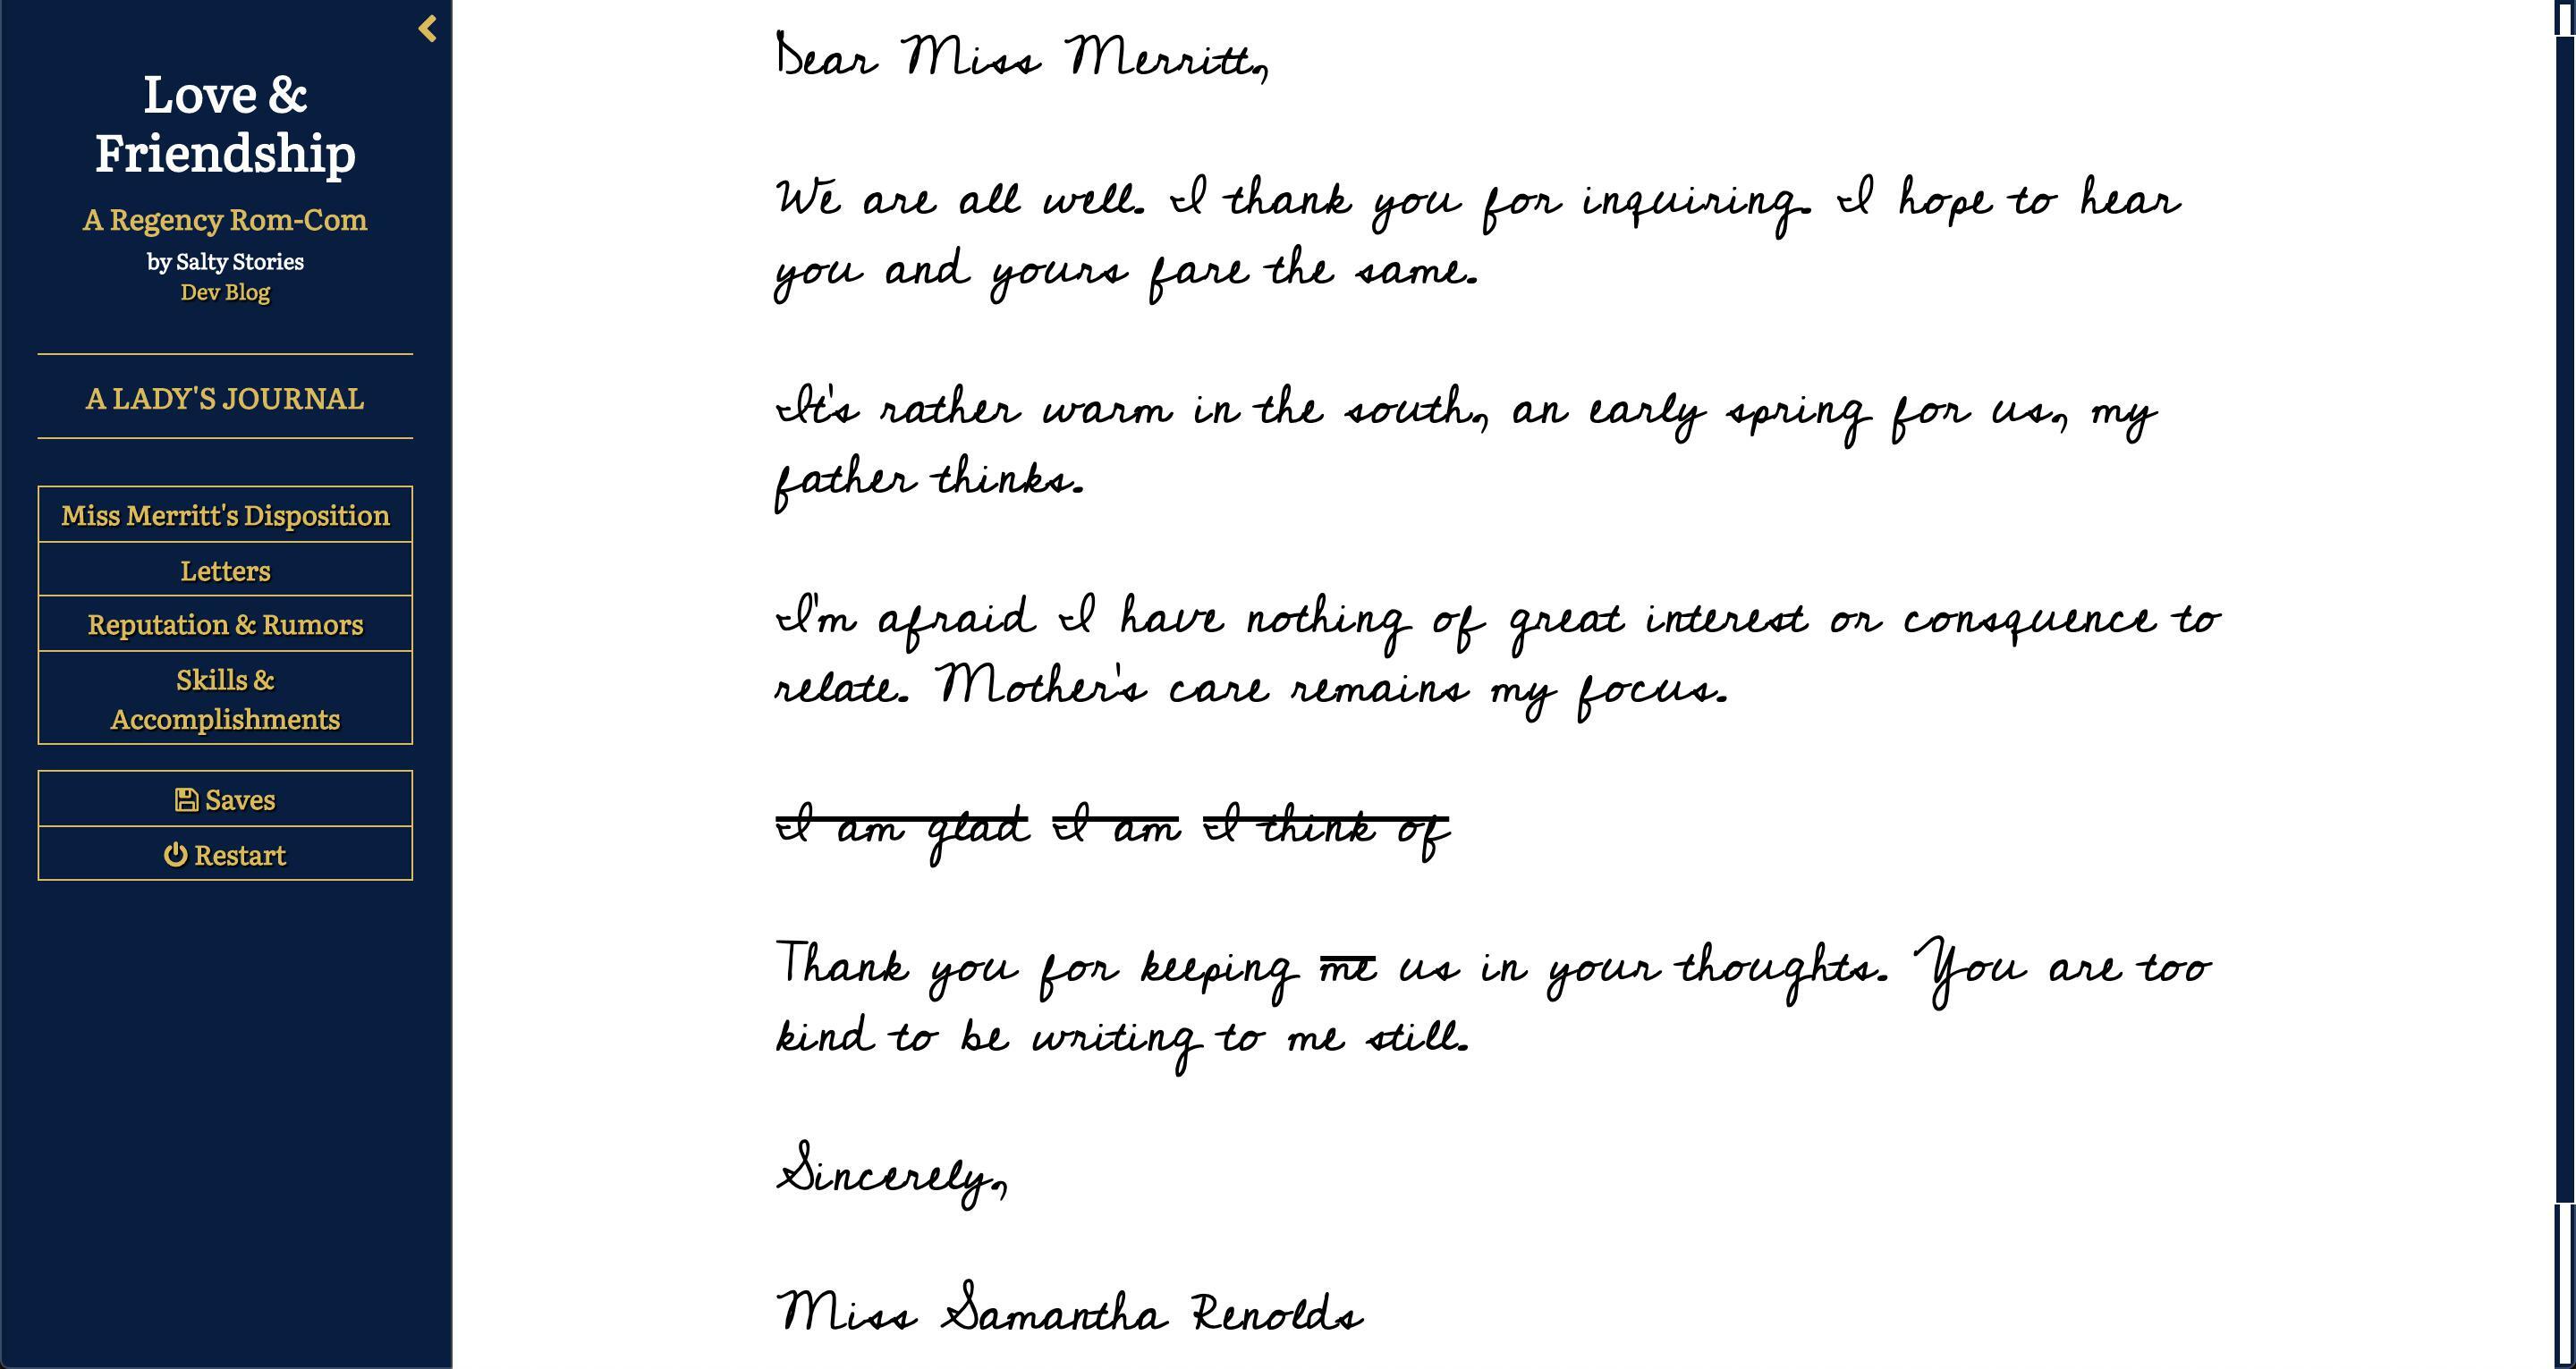 Love &
Friendship
A Regency Rom-Com
by Salty Stories
Dev Blog
A LADY'S JOURNAL
Miss Merritt's Disposition
Letters
Reputation & Rumors
Skills &
Accomplishments
Saves
Restart
Dear Miss Merritt,
We are all well. I thank you for inquiring. I hope to hear
you and yours fare the same.
It's rather warm in the south, an early spring for us, my
father thinks.
I'm afraid I have nothing of great interest or consquence to
relate. Mother's care remains my focus.
I am glad I am I think of
Thank you for keeping me us in your thoughts. You are too
kind to be writing to me still.
Sincerely,
Miss Samantha Renolds